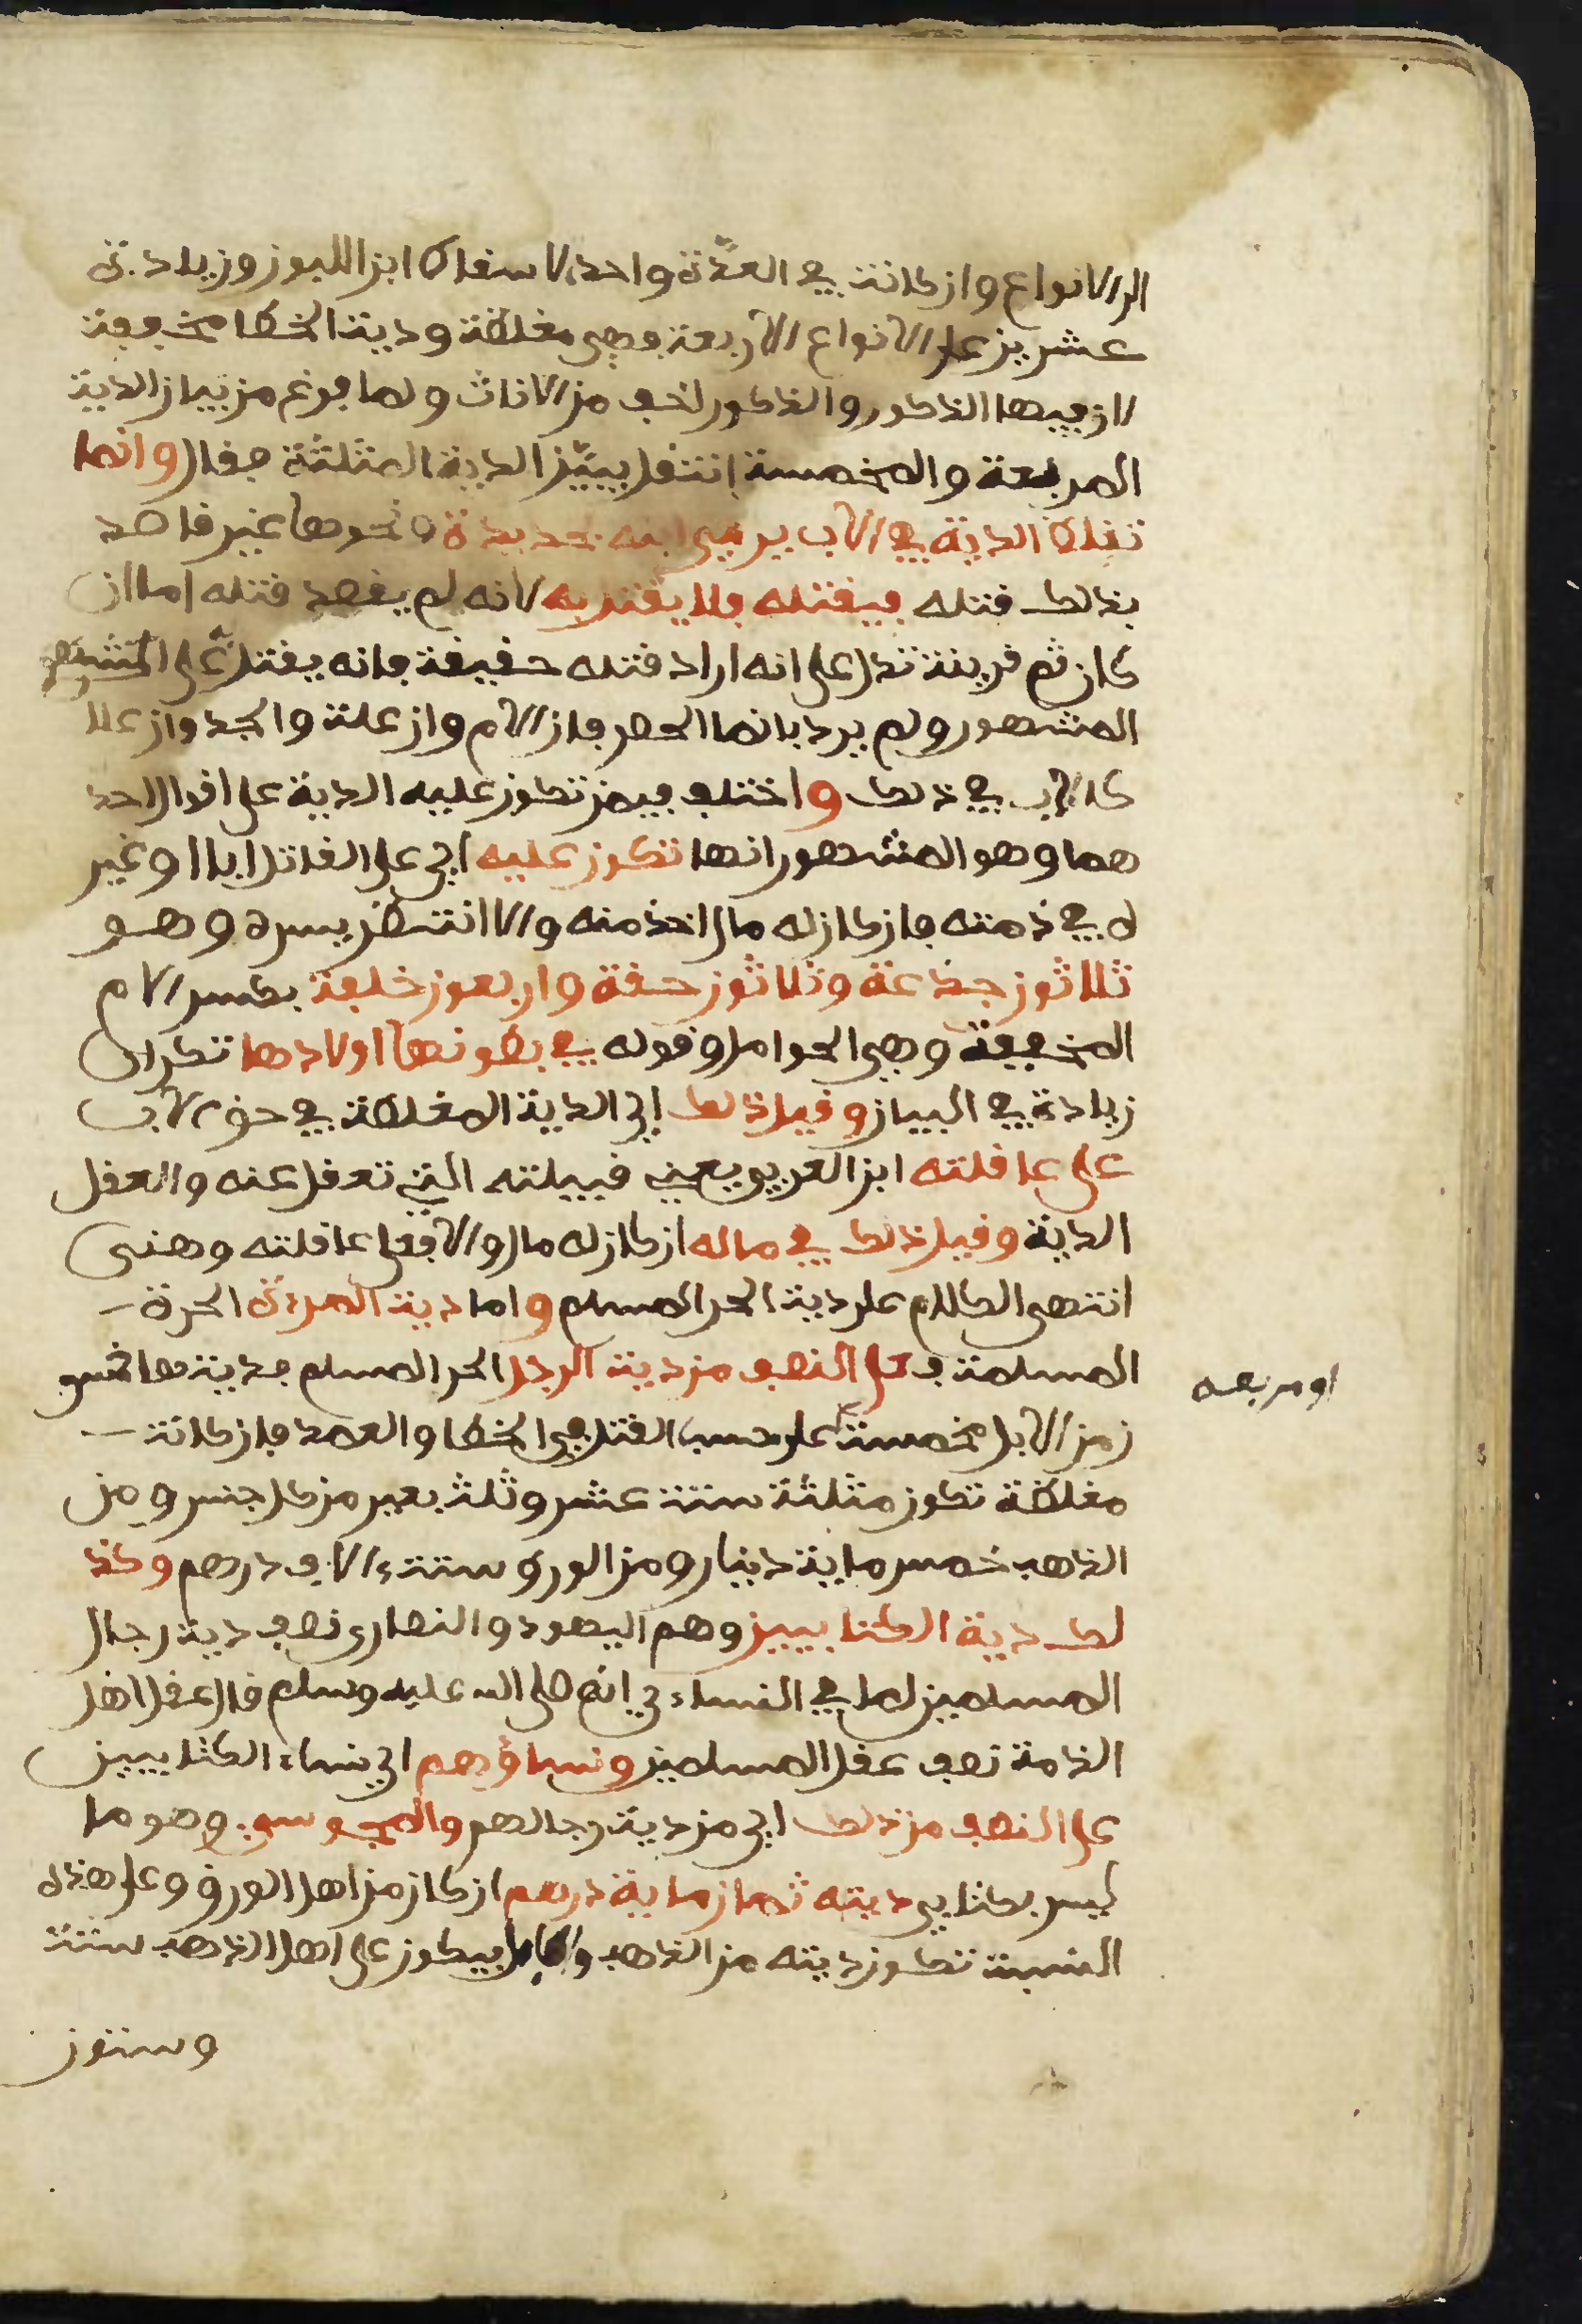 الى الانواع وان كانت في العدة واحد لاسقاط ابن اللبون وزيادة
عشرين على الانواع الاربعة وهي مغلظة ودية الخطا مخففة
لان فيها الذكور والذكور اخف من الاناث ولما فرغ من بيان الدية
المربعة والمخمسة انتقل يبين الدية المثلثة فقال وانما
تغلظ الدية في الاب يرمي ابنه بحديدة ونحوها غير قاصد
بذلك قتله فيقتله فلا يقتل به لانه لم يقصد قتله اما ان
كان ثم قرينة تدل على انه اراد قتله حقيقة فانه يقتل على المشهور
المشهور ولم يرد بانما الحصر فان الام وان علت والجد وان علا
كالاب في ذلك واختلف فيمن تكون عليه الدية على اقوال احد
هما وهو المشهور انها تكون عليه اي على القاتل ابا او غير
ه في ذمته فان كان له مال اخذ منه والا انتظر يسره وهو
ثلاثون جذعة وثلاثون حقة واربعون خلفة بكسر الام
المخففة وهي الحوامل وقوله في بطونها اولادها تكرار
زيادة في البيان وقيل ذلك اي الدية المغلظة في حق الاب
على عاقلته ابن العربي يعني قبيلته التي تعقل عنه والعقل
الدية وقيل ذلك في ماله ان كان له مال والا فعلى عاقلته وهنى
انتهى الكلام على دية الحر المسلم واما دية المرءة الحرة
المسلمة فـ على النصف من دية الرجل الحر المسلم فديتها خمسو
ن من الابل مخمسة على حسب القتل في الخطا والعمد فان كانت
او مربعه
مغلظة تكون مثلثة ستة عشر وثلث بعير من كل جنس ومن
الذهب خمس ماية دينار ومن الورق ستة ءالاف درهم وكذ
لك دية الكتابيين وهم اليهود والنصارى نصف دية رجال
المسلمين لما في النساءي انه صلى الله عليه وسلم قال عقل اهل
الذمة نصف عقل المسلمين ونساؤهم اي نساء الكتابيين
على النصف من ذلك اي من دية رجالهم والمجوسي وهو ما
ليس بكتابي ديته ثمان ماية درهم ان كان من اهل الورق وعلى هذه
النسبة تكون ديته من الذهب والابل فيكون على اهل الذهب ستة
وستون